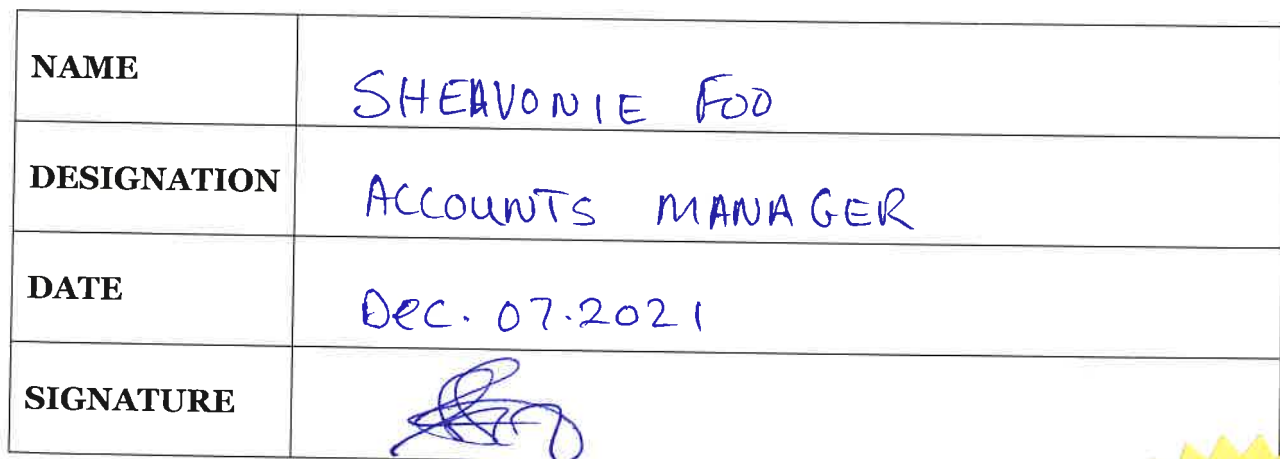 NAME SHEAVONIE FOO
DESIGNATION ACCOUNTS MANAGER
DATE Dec. 07.2021
SIGNATURE